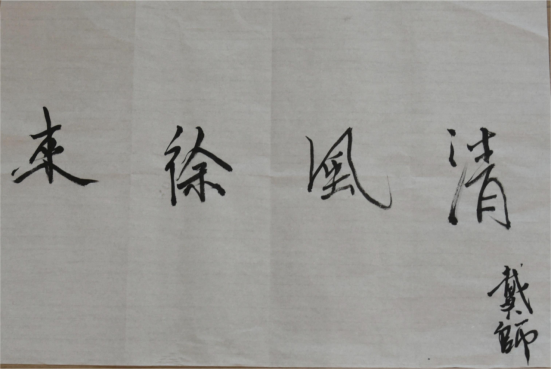 清風徐来
戴師